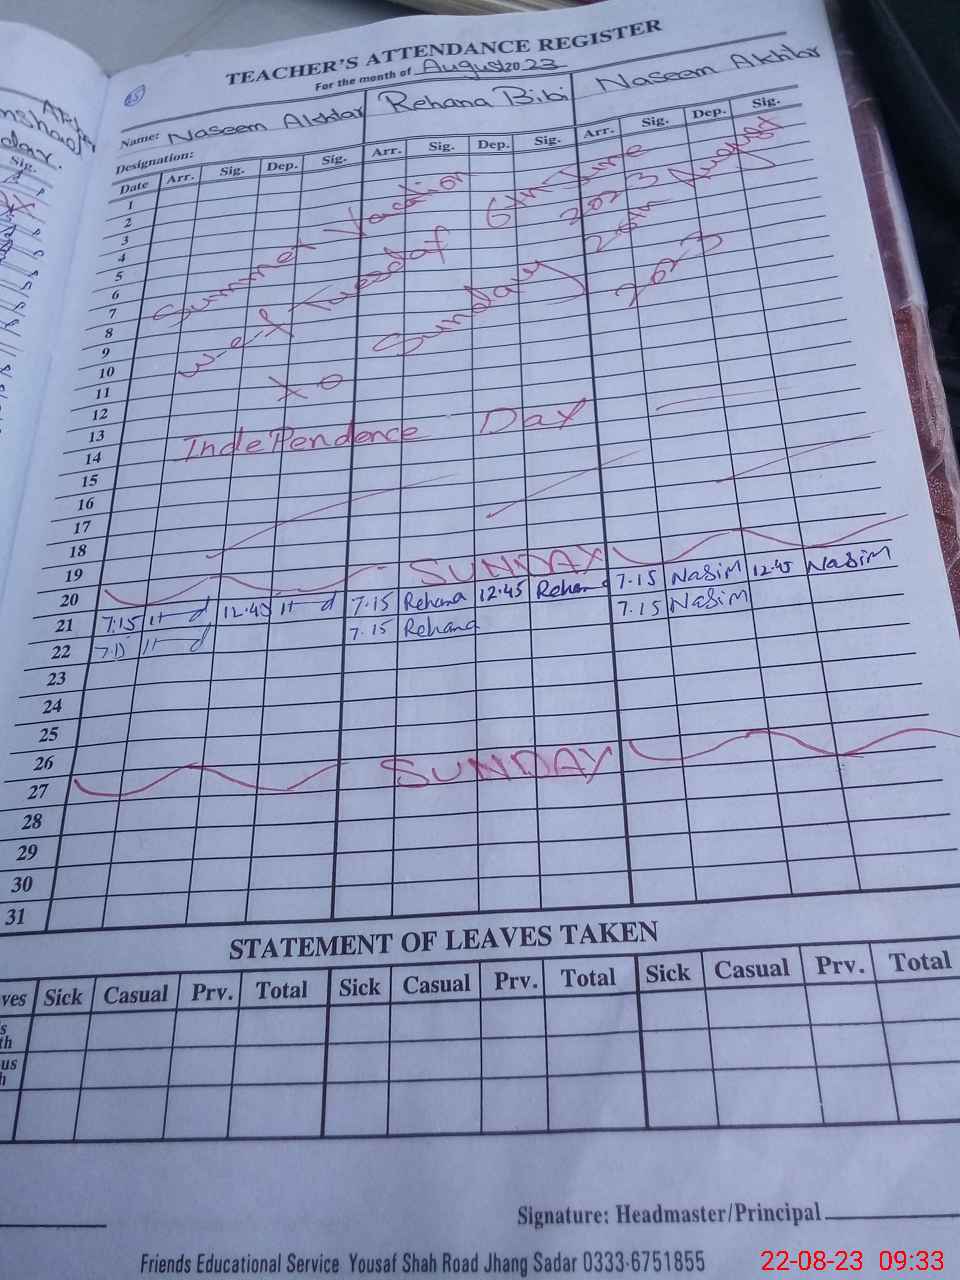 TEACHER'S ATTENDANCE REGISTER
For the month of August 2023
85
Name: Naseem Akhtar Rehana Bibi Naseem Akhtar
Designation:
Date Arr. Sig. Dep. Sig. Arr. Sig. Dep. Sig. Arr. Sig. Dep. Sig.
1
2
3
4
5
6
7
8
9
10
11
12
13
14
15
16
17
18
19
20
21
22
23
24
25
26
27
28
29
30
31
Summer Vacation
w-e-f Tuesday 6th June 2023
to Sunday 20th August 2023
Independence Day
SUNDAY
7:15 12.45 7.15 Rehana 12.45 Rehana 7.15 Nasim 12.45 Nasim
7.15 7.15 Rehana 7.15 Nasim
SUNDAY
STATEMENT OF LEAVES TAKEN
ves Sick Casual Prv. Total Sick Casual Prv. Total Sick Casual Prv. Total
s
th
us
h
Signature: Headmaster/Principal
Friends Educational Service Yousaf Shah Road Jhang Sadar 0333-6751855
22-08-23 09:33
Sig.